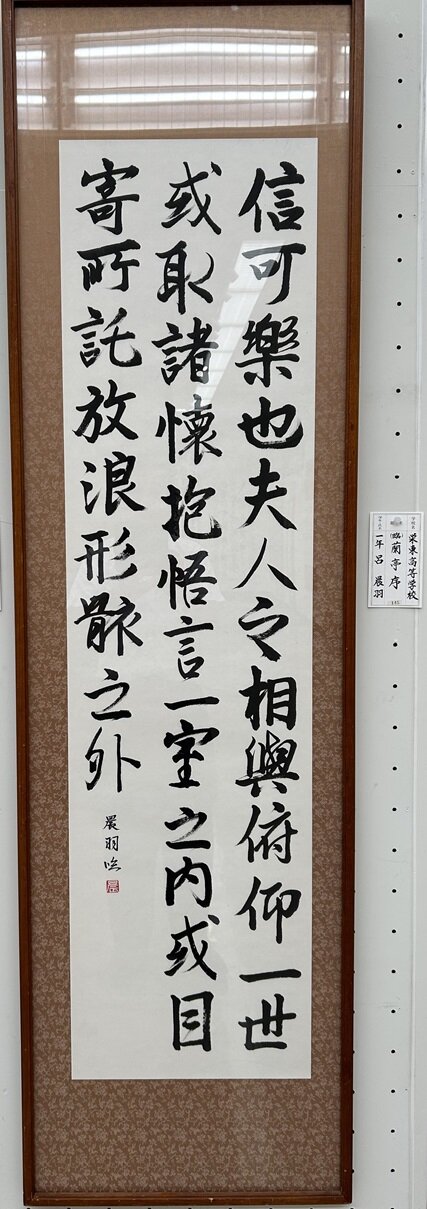 信可樂也夫人之相與俯仰一世
或取諸懷抱悟言一室之内或因
寄所託放浪形骸之外
晨羽臨
学校名
栄東高等学校
(臨)蘭亭序
145
一年 呂 晨羽